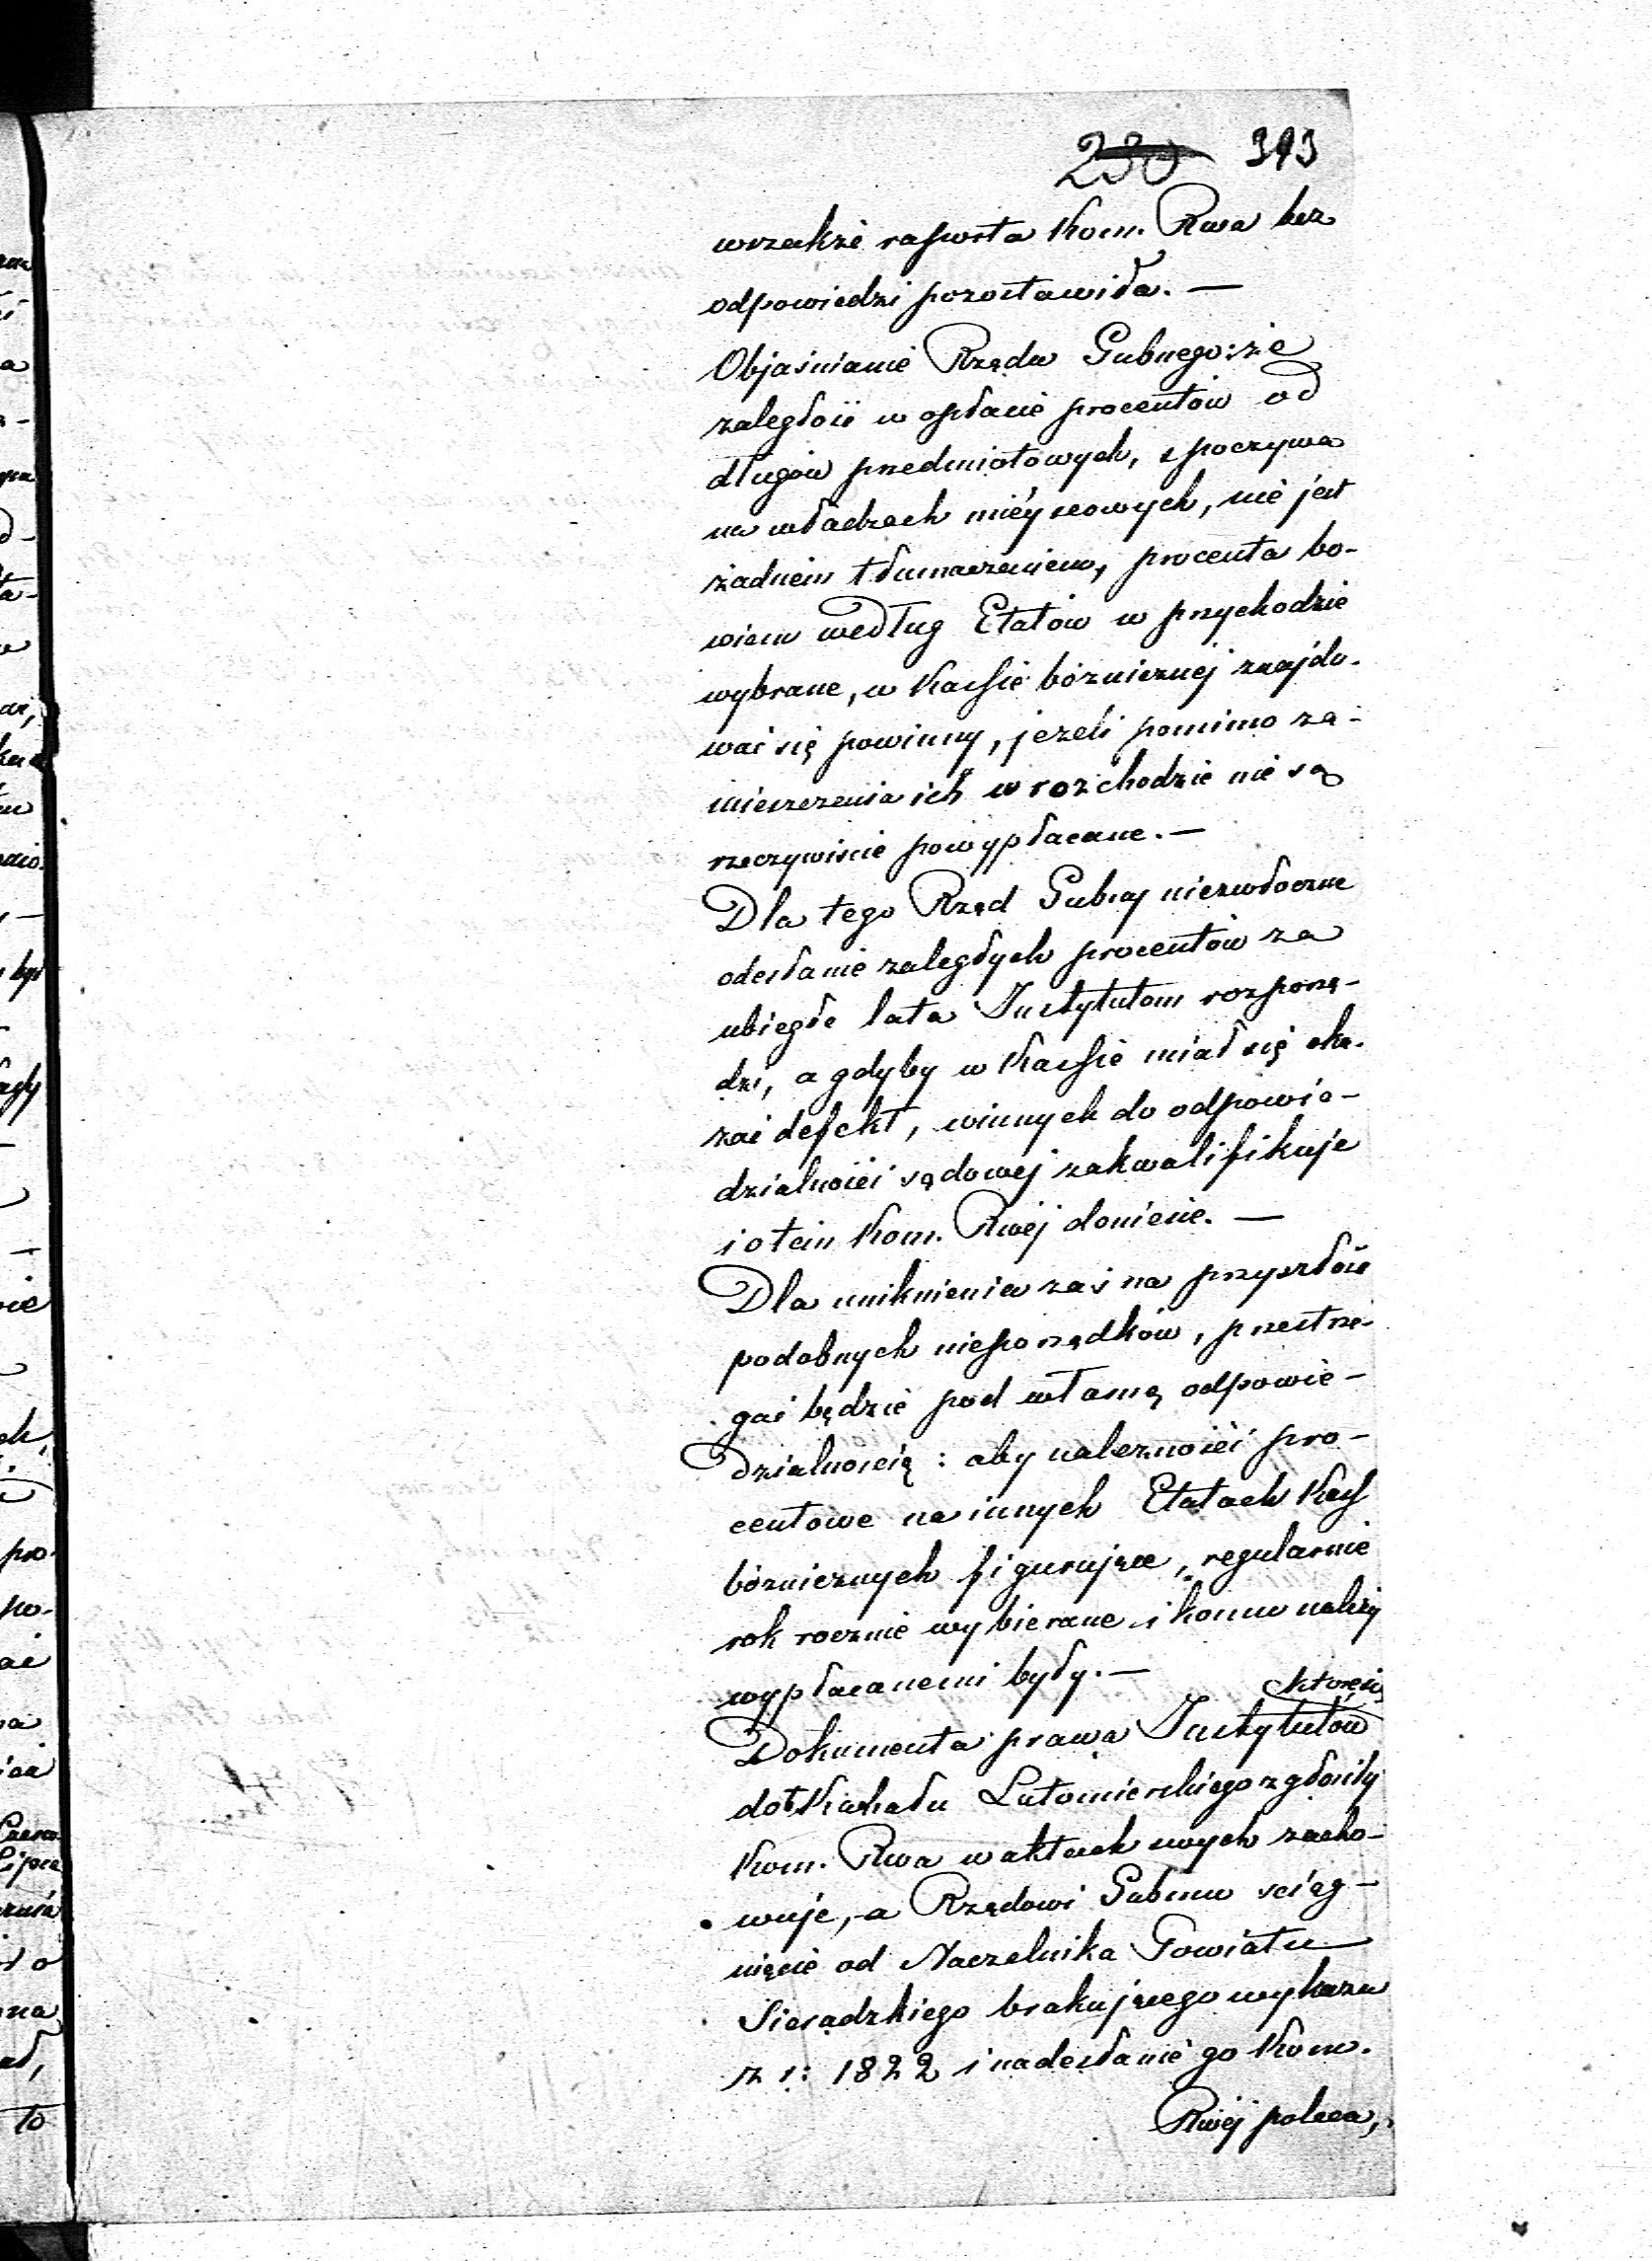 230 393
wszakże raporta Kom. Rwa bez
odpowiedzi pozostawiła. —
Objaśnianie Rządu Gubnego: że
zaległość w opłacie procentów od
długów przedmiotowych, spoczywa
na władzach mièyscowych, nie jest
żadnem tłumaczeniem, procenta bo-
wiem według Etatów w przychodzie
wybrane, w Kassie bóżnicznéj znajdo-
wać się powinny, jeżeli pomimo za-
mieszczenia ich w rozchodzie nie są
rzeczywiście powypłacane. —
Dla tego Rząd Gubny niezwłoczne
odesłanie zaległych procentów za
ubiegłe lata Instytutom rozporzą-
dzi, a gdyby w Kassie miał się oka-
zać defekt, winnych do odpowie-
dzialności sądowej zakwalifikuje
i o tem Kom. Rwéj doniesie. —
Dla uniknienia zaś na przyszłość
podobnych nieporządków, przestrze-
gać będzie pod własną odpowie-
dzialnością: aby należności pro-
centowe na innych Etatach Kass
bóżnicznych figurujące, regularnie
rok rocznie wybierane i komu należy
wypłacanemi były. —
Dokumenta prawa Instytutów
do Kahału Lutomierskiego
Kom. Rwa w aktach swych zacho-
wuje, a Rządowi Gubmu ściąg-
nięcie od Naczelnika Powiatu
Sieradzkiego brakującego wykazu
z r: 1822 i nadesłanie go Kom.
Rwéj poleca,